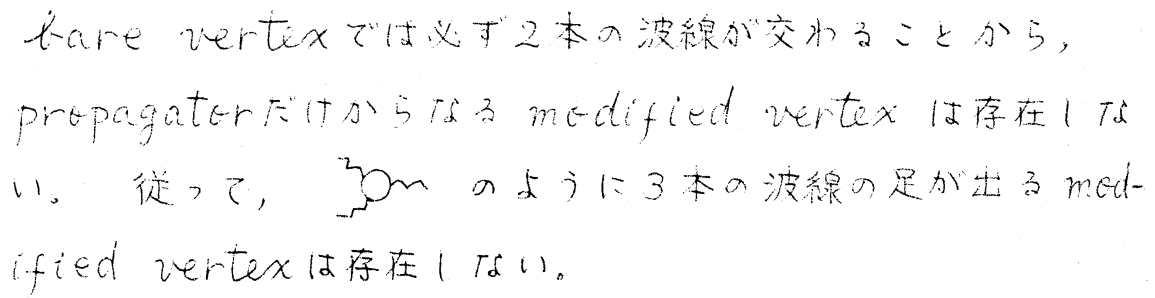 bare vertexでは必ず2本の波線が交わることから,
propagatorだけからなる modified vertex は存在しな
い。 従って, のように3本の波線の足が出る mod-
ified vertexは存在しない。